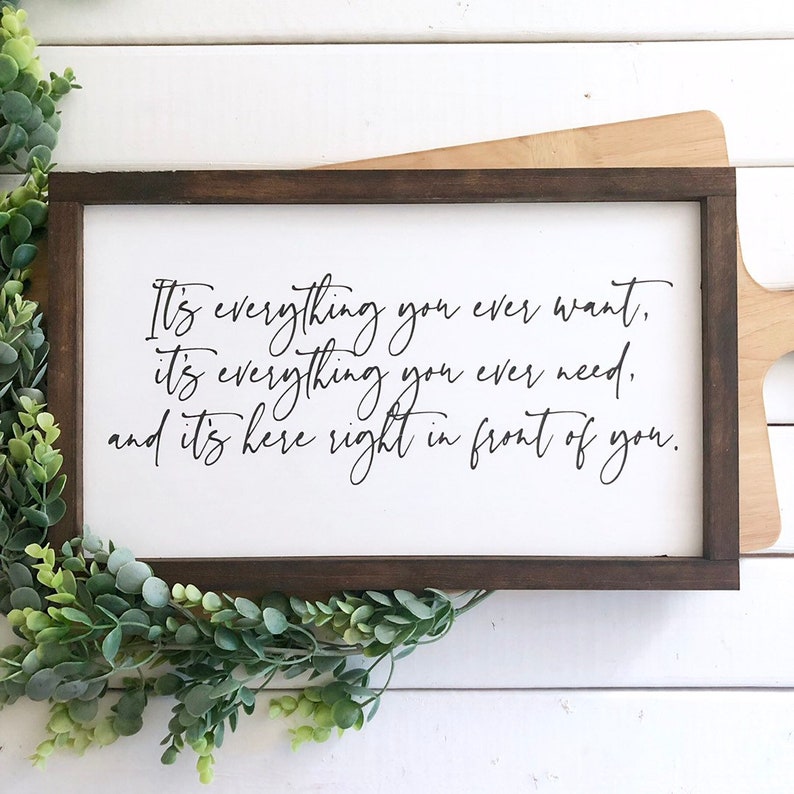 It's everything you ever want,
it's everything you ever need,
and it's here right in front of you.